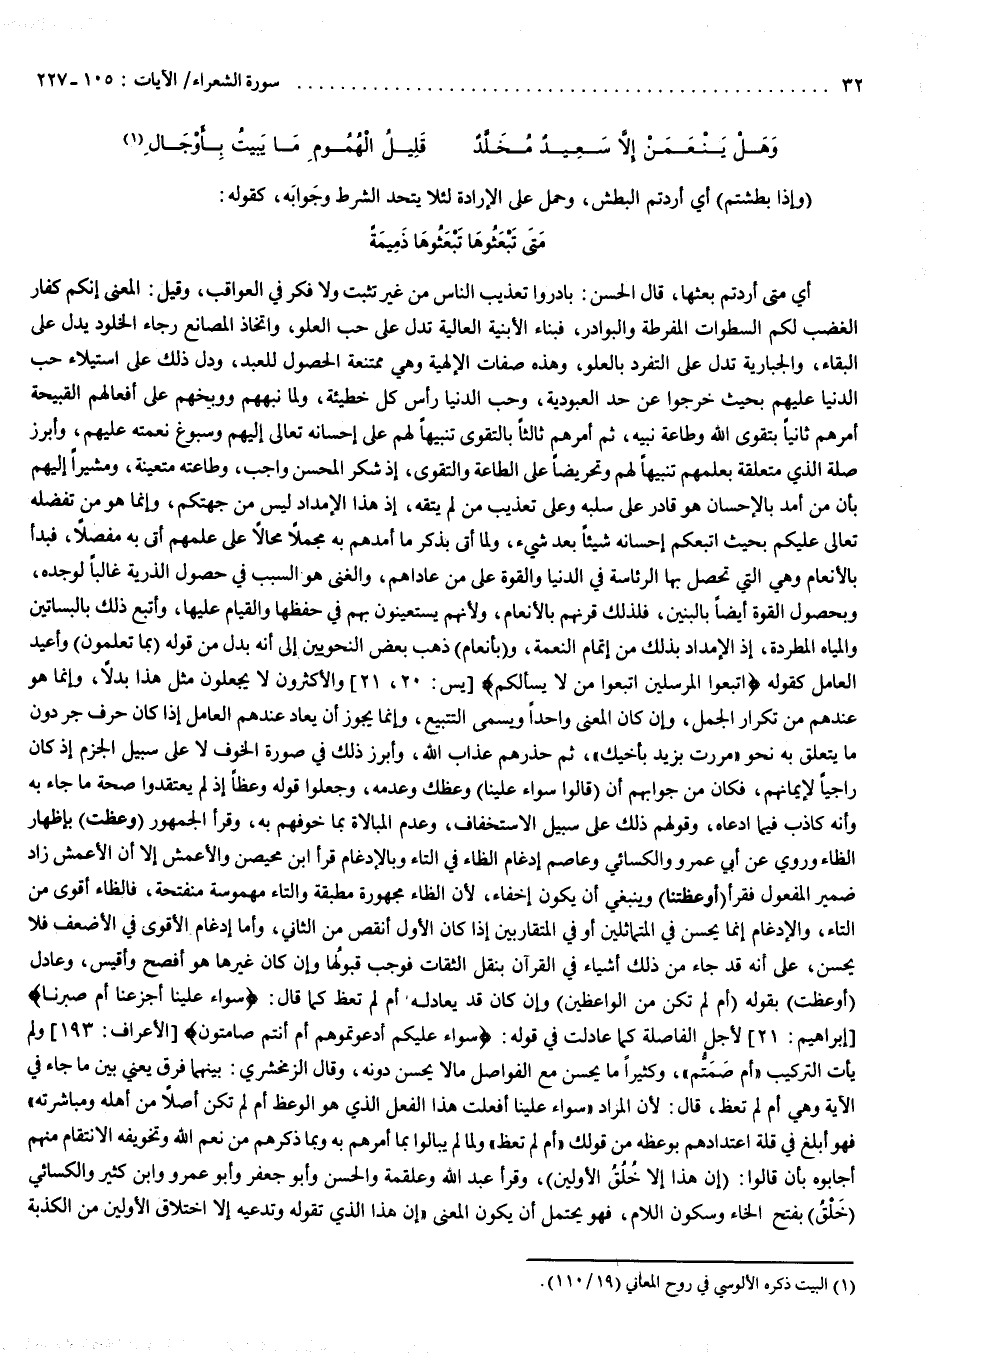 ٣٢ ........................................ سورة الشعراء/ الآيات : ١٠٥ـ٢٢٧
وَهَلْ يَـنْـعَـمَـنْ إِلَّا سَـعِـيـدٌ مُـخَـلَّدٌ قَلِيـلُ الْهُمُـومِ مَـا يَبِيتُ بِـأَوْجَـالِ(١)
(وإذا بطشتم) أي أردتم البطش، وحمل على الإرادة لئلا يتحد الشرط وجَوابَه، كقوله :
مَتَى تَبْعَثُوهَا تَبْعَثُوهَا ذَمِيمَةً
أي متى أردتم بعثها، قال الحسن: بادروا تعذيب الناس من غير تثبت ولا فكر في العواقب، وقيل: المعنى إنكم كفار
الغضب لكم السطوات المفرطة والبوادر، فبناء الأبنية العالية تدل على حب العلو، واتخاذ المصانع رجاء الخلود يدل على
البقاء، والجبارية تدل على التفرد بالعلو، وهذه صفات الإلهية وهي ممتنعة الحصول للعبد، ودل ذلك على استيلاء حب
الدنيا عليهم بحيث خرجوا عن حد العبودية، وحب الدنيا رأس كل خطيئة، ولما نبههم ووبخهم على أفعالهم القبيحة
أمرهم ثانياً بتقوى الله وطاعة نبيه، ثم أمرهم ثالثاً بالتقوى تنبيهاً لهم على إحسانه تعالى إليهم وسبوغ نعمته عليهم، وأبرز
صلة الذي متعلقة بعلمهم تنبيهاً لهم وتحريضاً على الطاعة والتقوى، إذ شكر المحسن واجب، وطاعته متعينة، ومشيراً إليهم
بأن من أمد بالإحسان هو قادر على سلبه وعلى تعذيب من لم يتقه، إذ هذا الإمداد ليس من جهتكم، وإنما هو من تفضله
تعالى عليكم بحيث اتبعكم إحسانه شيئاً بعد شيء، ولما أتى بذكر ما أمدهم به مجملاً محالًا على علمهم أتى به مفصلًا، فبدأ
بالأنعام وهي التي تحصل بها الرئاسة في الدنيا والقوة على من عاداهم، والغنى هو السبب في حصول الذرية غالباً لوجده،
وبحصول القوة أيضاً بالبنين، فلذلك قرنهم بالأنعام، ولأنهم يستعينون بهم في حفظها والقيام عليها، وأتبع ذلك بالبساتين
والمياه المطردة، إذ الإمداد بذلك من إتمام النعمة، و(بأنعام) ذهب بعض النحويين إلى أنه بدل من قوله (بما تعلمون) وأعيد
العامل كقوله ﴿اتبعوا المرسلين اتبعوا من لا يسألكم﴾ [يس: ٢٠، ٢١] والأكثرون لا يجعلون مثل هذا بدلًا، وإنما هو
عندهم من تكرار الجمل، وإن كان المعنى واحداً ويسمى التتبيع، وإنما يجوز أن يعاد عندهم العامل إذا كان حرف جر دون
ما يتعلق به نحو «مررت بزيد بأخيك»، ثم حذرهم عذاب الله، وأبرز ذلك في صورة الخوف لا على سبيل الجزم إذ كان
راجياً لإيمانهم، فكان من جوابهم أن (قالوا سواء علينا) وعظك وعدمه، وجعلوا قوله وعظاً إذ لم يعتقدوا صحة ما جاء به
وأنه كاذب فيما ادعاه، وقولهم ذلك على سبيل الاستخفاف، وعدم المبالاة بما خوفهم به، وقرأ الجمهور (وعظت) بإظهار
الظاء وروي عن أبي عمرو والكسائي وعاصم إدغام الظاء في التاء وبالإدغام قرأ ابن محيصن والأعمش إلا أن الأعمش زاد
ضمير المفعول فقرأ(أوعظتنا) وينبغي أن يكون إخفاء، لأن الظاء مجهورة مطبقة والتاء مهموسة منفتحة، فالظاء أقوى من
التاء، والإدغام إنما يحسن في المتماثلين أو في المتقاربين إذا كان الأول أنقص من الثاني، وأما إدغام الأقوى في الأضعف فلا
يحسن، على أنه قد جاء من ذلك أشياء في القرآن بنقل الثقات فوجب قبولُها وإن كان غيرها هو أفصح وأقيس، وعادل
(أوعظت) بقوله (أم لم تكن من الواعظين) وإن كان قد يعادلـه أم لم تعظ كما قال: ﴿سواء علينا أجزعنا أم صبرنـا﴾
[إبراهيم: ٢١] لأجل الفاصلة كما عادلت في قوله: ﴿سواء عليكم أدعوتموهم أم أنتم صامتون﴾ [الأعراف: ١٩٣] ولم
يأت التركيب «أم صَمَتُّم»، وكثيراً ما يحسن مع الفواصل مالا يحسن دونه، وقال الزمخشري: بينهما فرق يعني بين ما جاء في
الآية وهي أم لم تعظ، قال: لأن المراد «سواء علينا أفعلت هذا الفعل الذي هو الوعظ أم لم تكن أصلًا من أهله ومباشرته»
فهو أبلغ في قلة اعتدادهم بوعظه من قولك «أم لم تعظ» ولما لم يبالوا بما أمرهم به وبما ذكرهم من نعم الله وتخويفه الانتقام منهم
أجابوه بأن قالوا: (إن هذا إلا خُلُقُ الأولين)، وقرأ عبد الله وعلقمة والحسن وأبو جعفر وأبو عمرو وابن كثير والكسائي
(خَلْقُ) بفتح الخاء وسكون اللام، فهو يحتمل أن يكون المعنى «إن هذا الذي تقوله وتدعيه إلا اختلاق الأولين من الكذبة
(١) البيت ذكره الألوسي في روح المعاني (١١٠/١٩).